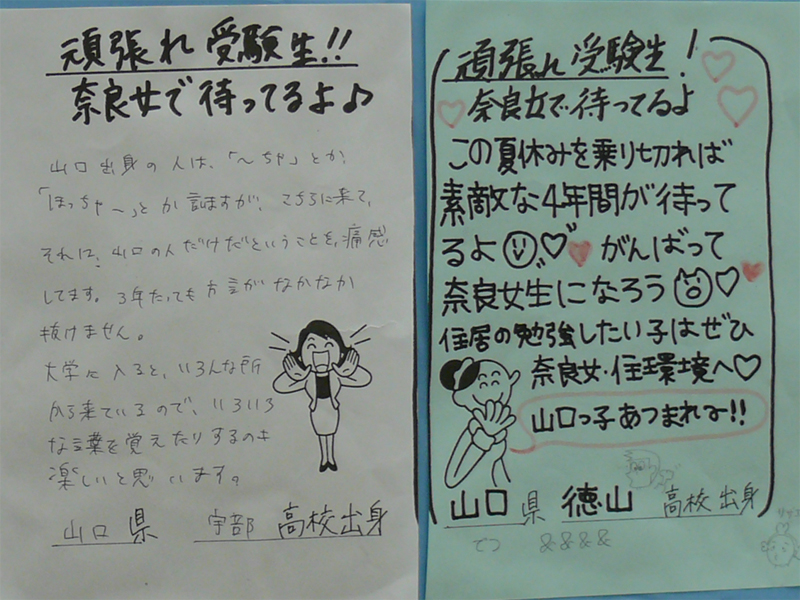 頑張れ 受験生!!
奈良女で待ってるよ♪
山口出身の人は、「〜ちゃ」とか、
「ほっちゃ〜」とか言いますが、こちらに来て、
それは、山口の人だけだということを、痛感
してます。3年たっても方言がなかなか
抜けません。
大学に入ると、いろんな所
から来ているので、いろいろ
な言葉を覚えたりするのも
楽しいと思います。
山口 県 宇部 高校出身
頑張れ 受験生!
奈良女で待ってるよ
この夏休みを乗り切れば
素敵な4年間が待って
るよ♡ がんばって
奈良女生になろう♡
住居の勉強したい子はぜひ
奈良女・住環境へ♡
山口っ子あつまれー!!
山口 県 徳山 高校 出身
でつ &&&&